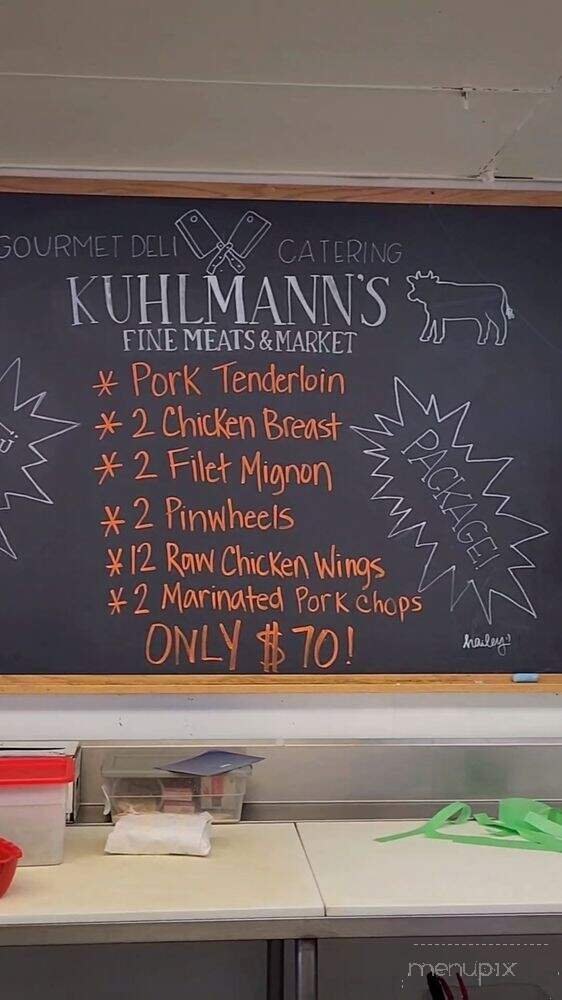 GOURMET DELI CATERING
KUHLMANN'S
FINE MEATS & MARKET
* Pork Tenderloin
* 2 Chicken Breast
* 2 Filet Mignon
* 2 Pinwheels
* 12 Raw Chicken Wings
* 2 Marinated Pork Chops
ONLY $70!
PACKAGE!
hailey
menupix